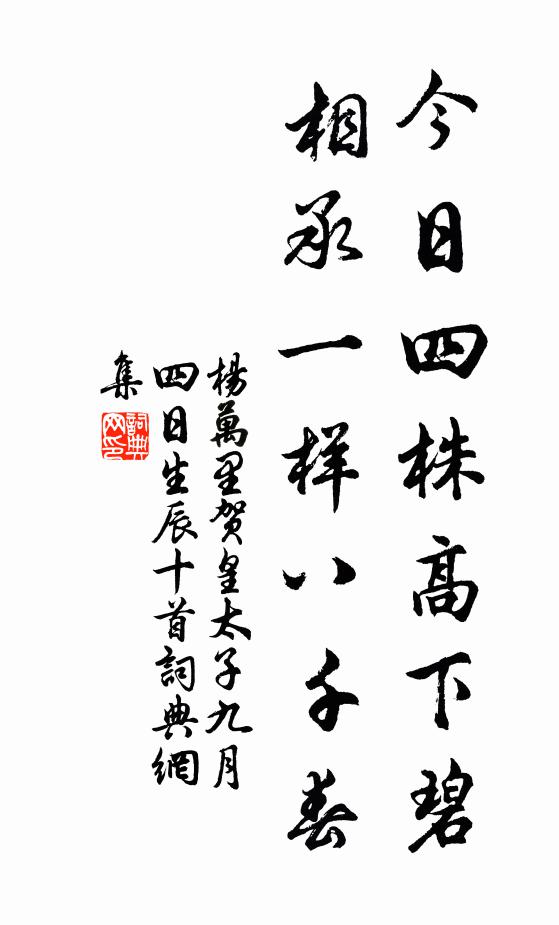 今日四株高下碧
相承一样八千春
楊萬里贺皇太子九月
四日生辰十首詞典網
集
詞典
网印